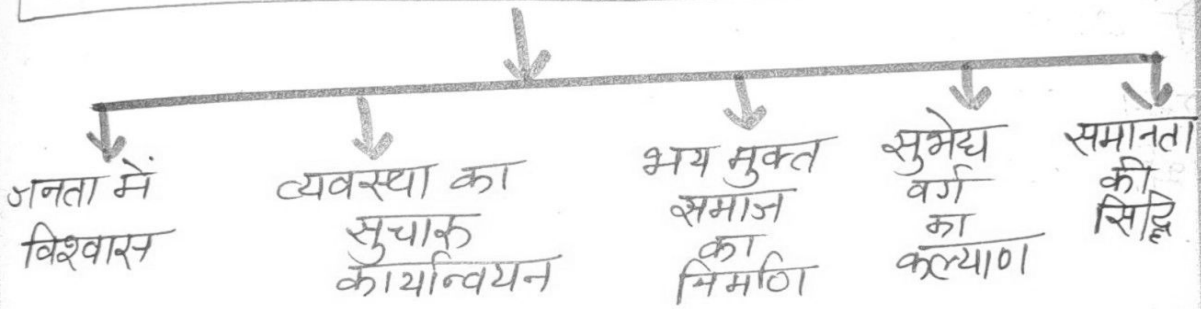 जनता में
विश्वास
व्यवस्था का
सुचारू
कार्यान्वयन
भय मुक्त
समाज
का
निर्माण
सुभेद्य
वर्ग
का
कल्याण
समानता
की
सिद्धि